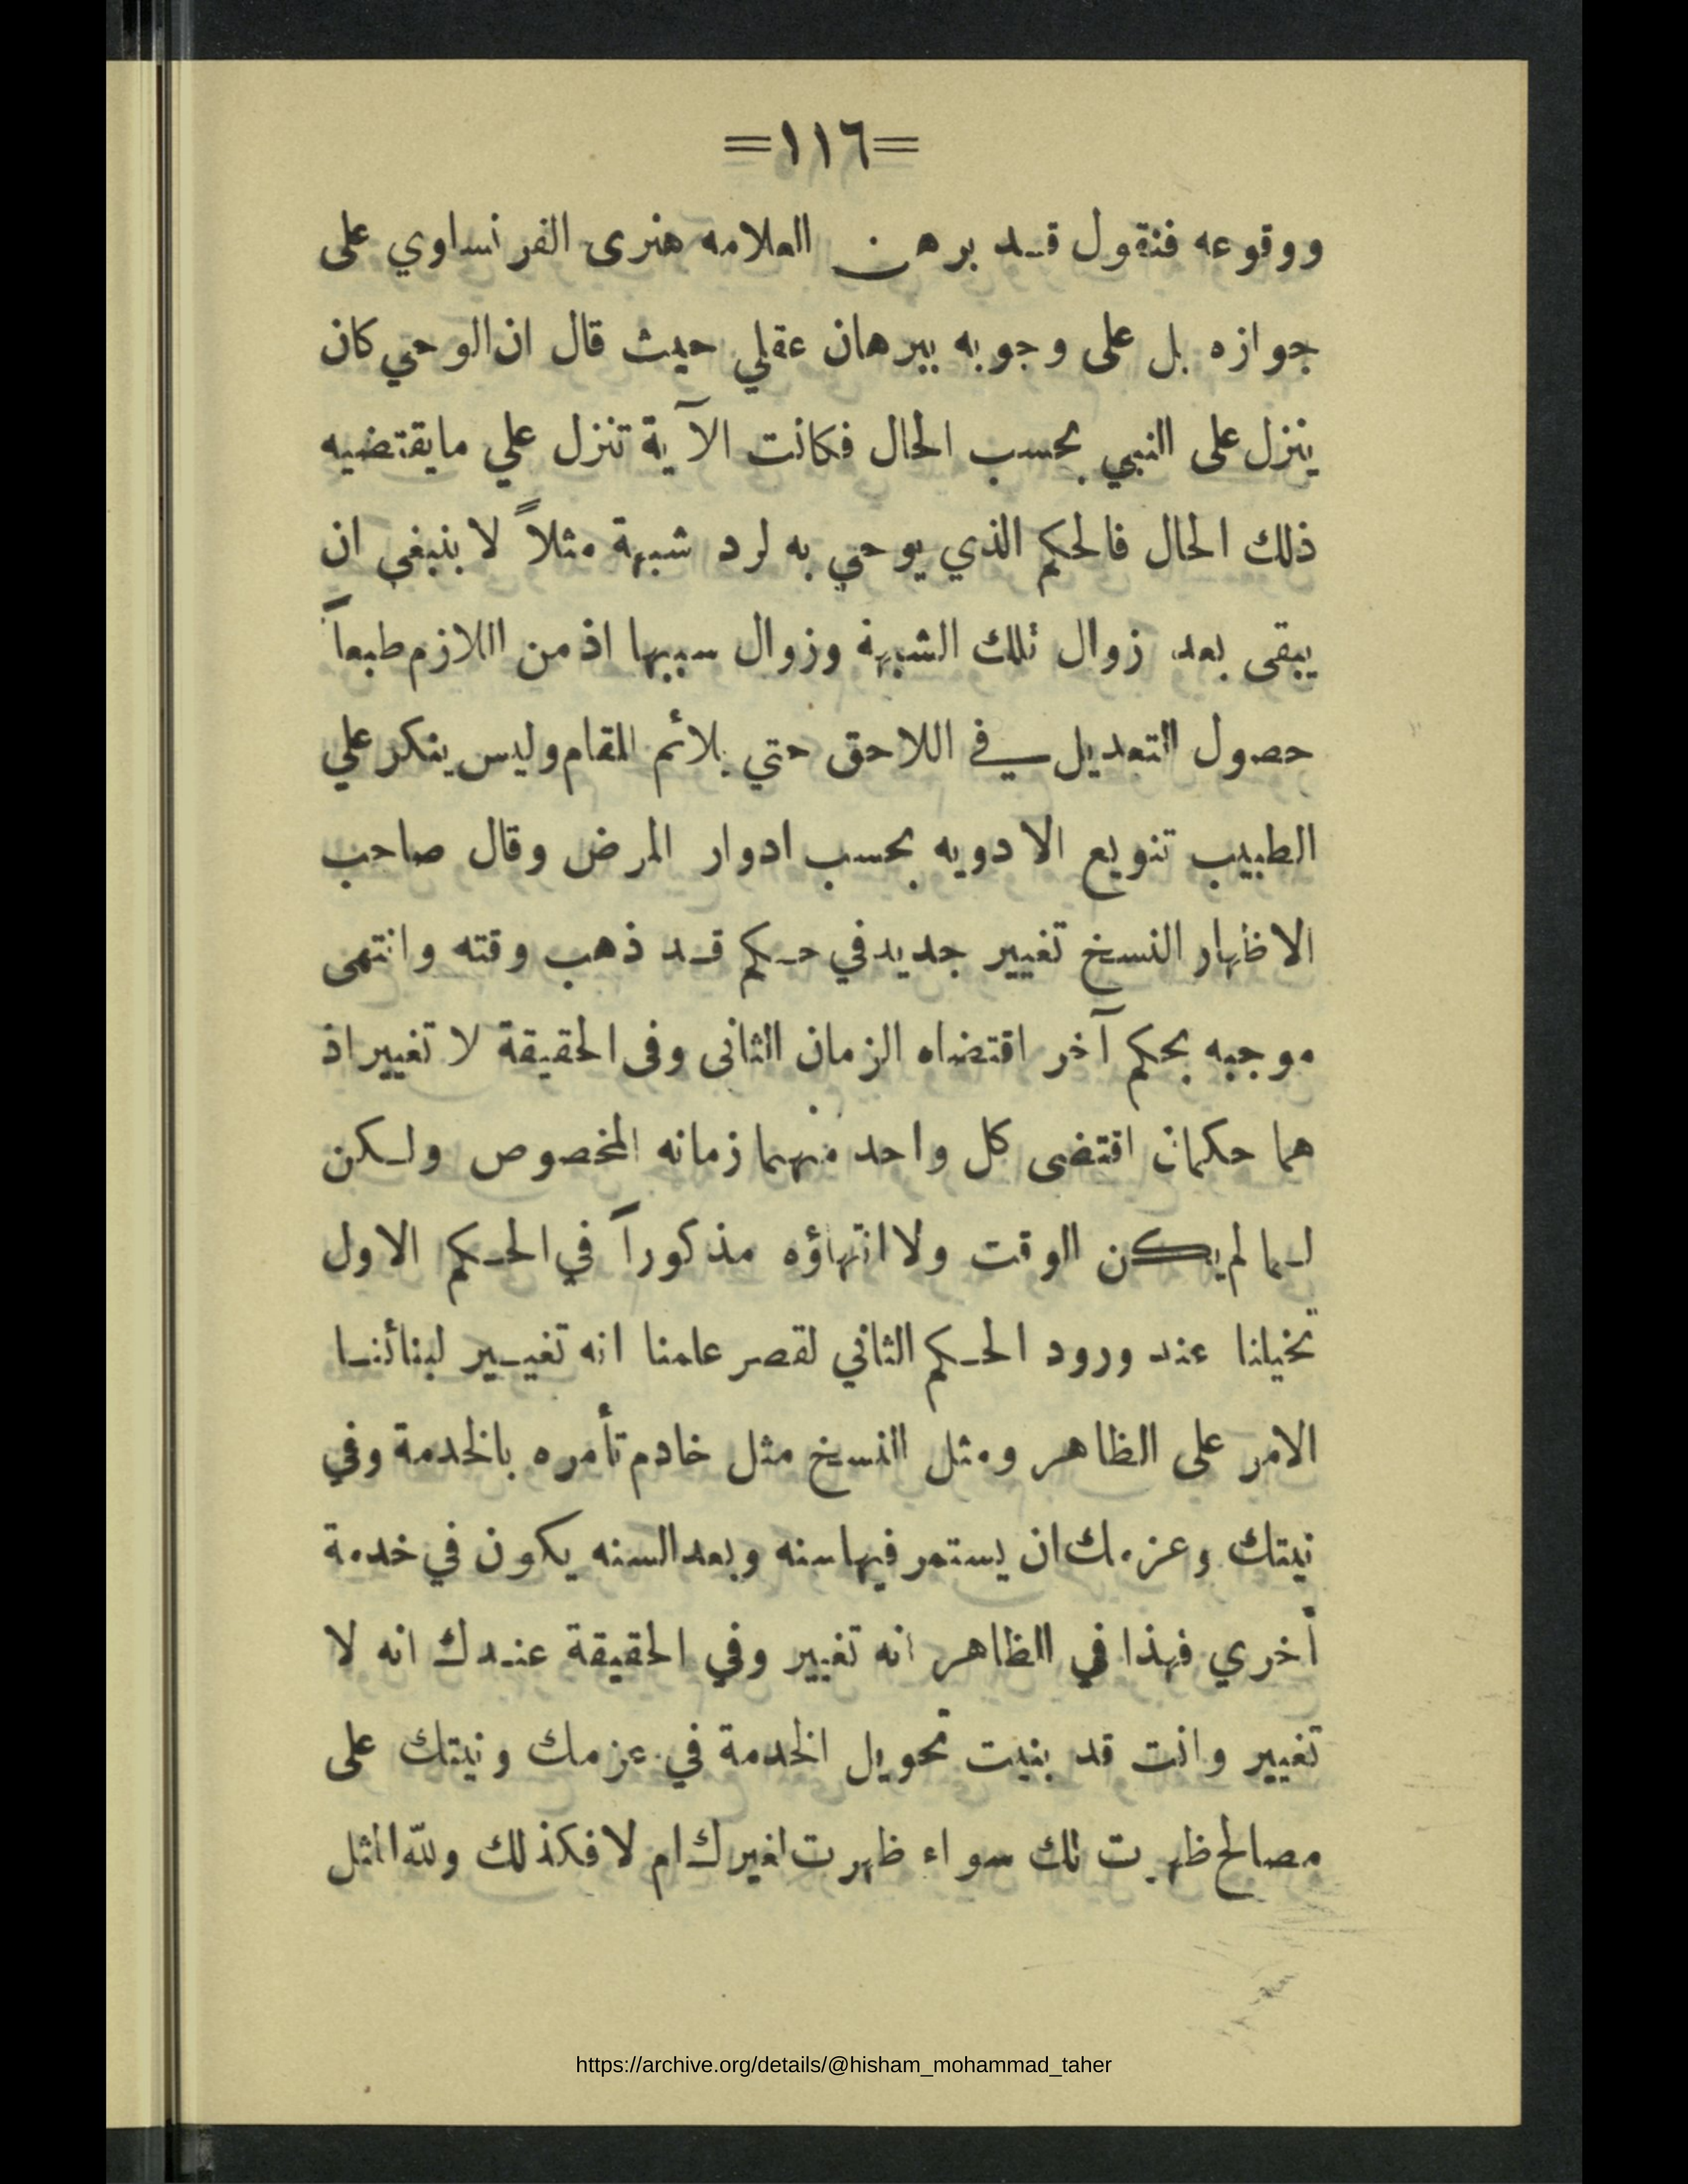 =١١٦=
ووقوعه فنقول قد برهن العلامه هنرى الفرنساوي على
جوازه بل على وجوبه ببرهان عقلي حيث قال ان الوحي كان
ينزل على النبي بحسب الحال فكانت الآية تنزل علي مايقتضيه
ذلك الحال فالحكم الذي يوحي به لرد شبهة مثلاً لا ينبغي ان
يبقى بعد زوال تلك الشبهة وزوال سببها اذ من اللازم طبعاً
حصول التعديل في اللاحق حتي يلائم المقام وليس ينكر علي
الطبيب تنويع الادويه بحسب ادوار المرض وقال صاحب
الاظهار النسخ تغيير جديد في حكم قد ذهب وقته وانتهى
موجبه بحكم آخر اقتضاه الزمان الثانى وفى الحقيقة لا تغيير اذ
هما حكمان اقتضى كل واحد منهما زمانه المخصوص ولكن
لما لم يكن الوقت ولا انتهاؤه مذكوراً في الحكم الاول
تخيلنا عند ورود الحكم الثاني لقصر علمنا انه تغيير لبنائنا
الامر على الظاهر ومثل النسخ مثل خادم تأمره بالخدمة وفي
نيتك وعزمك ان يستمر فيها سنه وبعد السنه يكون في خدمة
أخري فهذا في الظاهر انه تغيير وفي الحقيقة عندك انه لا
تغيير وانت قد بنيت تحويل الخدمة في عزمك ونيتك على
مصالح ظهرت لك سواء ظهرت لغيرك ام لا فكذلك ولله المثل
https://archive.org/details/@hisham_mohammad_taher